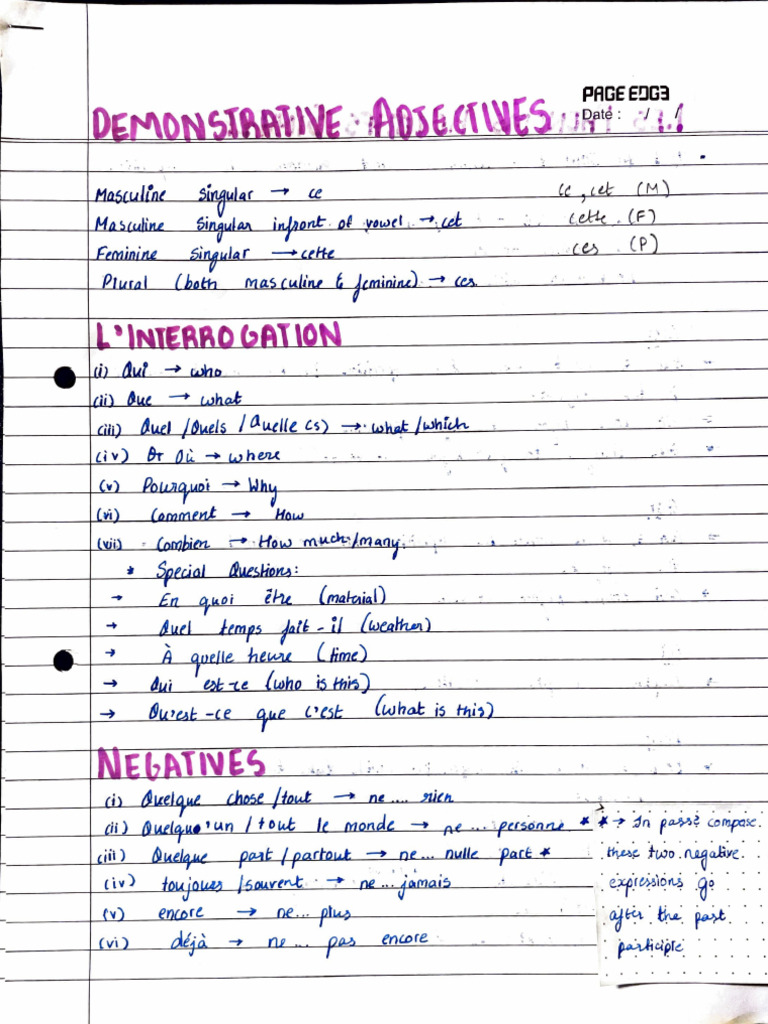 PAGE EDG3
Date : / /
DEMONSTRATIVE ADJECTIVES
Masculine singular → ce
ce, cet (M)
Masculine Singular infront of vowel → cet
cette (F)
Feminine singular → cette
ces (P)
Plural (both masculine & feminine) → ces
L'INTERROGATION
(i) Qui → who
(ii) Que → what
(iii) Quel / Quels / Quelle (s) → what / which
(iv) Où → where
(v) Pourquoi → Why
(vi) Comment → How
(vii) Combien → How much/many
* Special Questions:
→ En quoi être (material)
→ Quel temps fait-il (weather)
→ À quelle heure (time)
→ Qui est-ce (who is this)
→ Qu'est-ce que c'est (what is this)
NEGATIVES
(i) Quelque chose / tout → ne .... rien
(ii) Quelqu'un / tout le monde → ne ... personne *
(iii) Quelque part / partout → ne ... nulle part *
(iv) toujours / souvent → ne ... jamais
(v) encore → ne ... plus
(vi) déjà → ne ... pas encore
* → In passé compose
these two negative
expressions go
after the past
participle